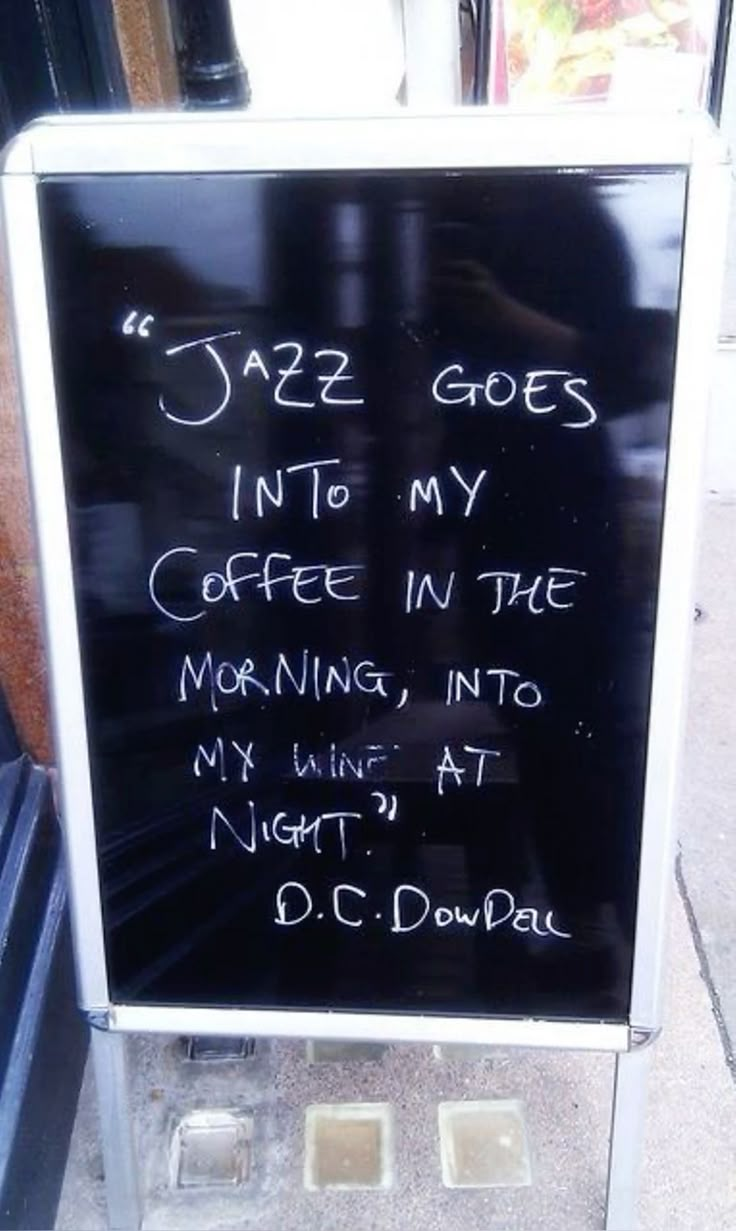 “JAZZ GOES
INTO MY
COFFEE IN THE
MORNING, INTO
MY WINE AT
NIGHT.”
D.C. DOWDELL